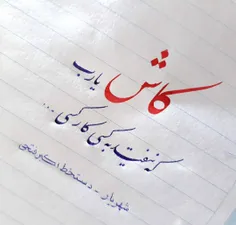 کاش یارب
که نیفتد به کسی کار کسی ...
شهریار - دستخط اکبر فتحی